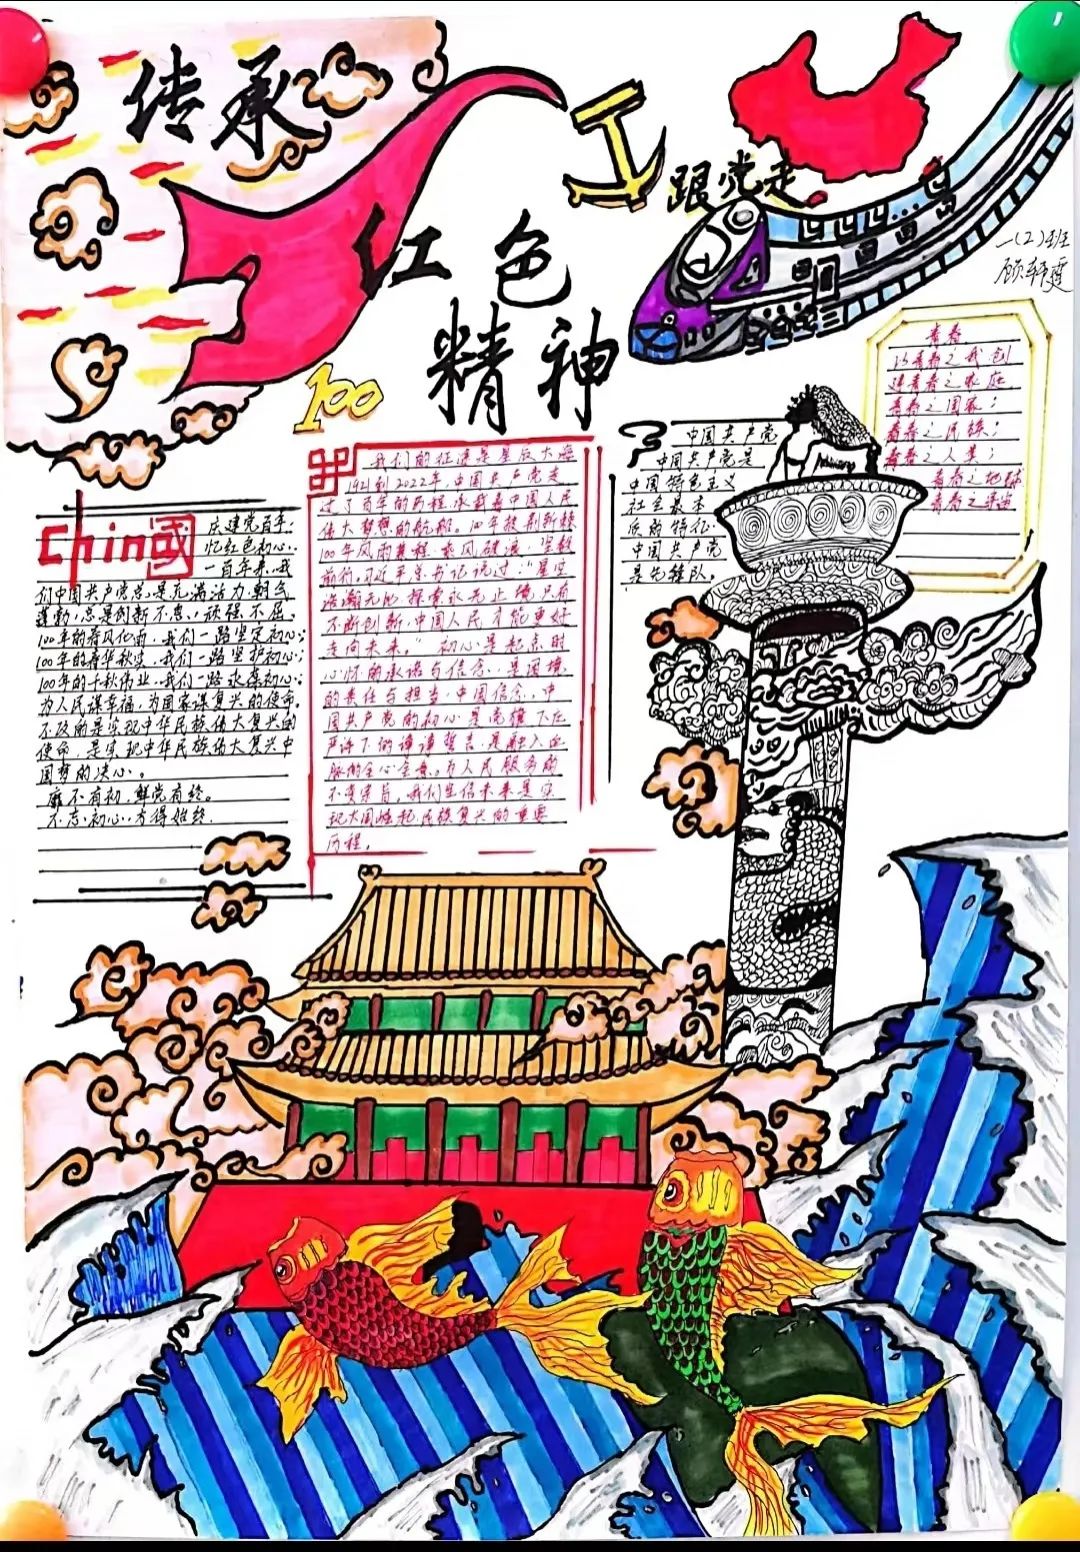 传承
红色
精神
跟党走
一(2)班
顾轩霆
100
China國
庆建党百年,
忆红色初心。
一百年来,我
们中国共产党总是充满活力、朝气
蓬勃,总是创新不怠、顽强不屈。
100年的春风化雨,我们一路坚定初心;
100年的春华秋实,我们一路坚护初心;
100年的千秋伟业,我们一路永葆初心;
为人民谋幸福,为国家谋复兴的使命。
不改的是实现中华民族伟大复兴的
使命,是实现中华民族伟大复兴中
国梦的决心。
靡不有初,鲜克有终。
不忘初心,方得始终。
我们的征途是星辰大海
1921到2022年,中国共产党走
过了百年的历程,承载着中国人民
伟大梦想的航船,
100年风雨兼程,乘风破浪,坚毅
前行。习近平总书记说过:“星空
浩瀚无比,探索永无止境,只有
不断创新,中国人民才能更好
走向未来。”初心是起点时
心怀的承诺与信念,是困境
的责任与担当。中国信念,中
国共产党的初心是党旗下庄
严许下的谆谆誓言,是融入血
脉的全心全意。为人民服务的
不变宗旨,我们坚信未来是实
现大国崛起、民族复兴的重要
历程。
中国共产党
中国共产党是
中国特色主义
社会最本
质的特征
中国共产党
是先锋队。
青春
以青春之我创
建青春之家庭,
青春之国家;
青春之民族;
青春之人类;
青春之地球
青春之宇宙